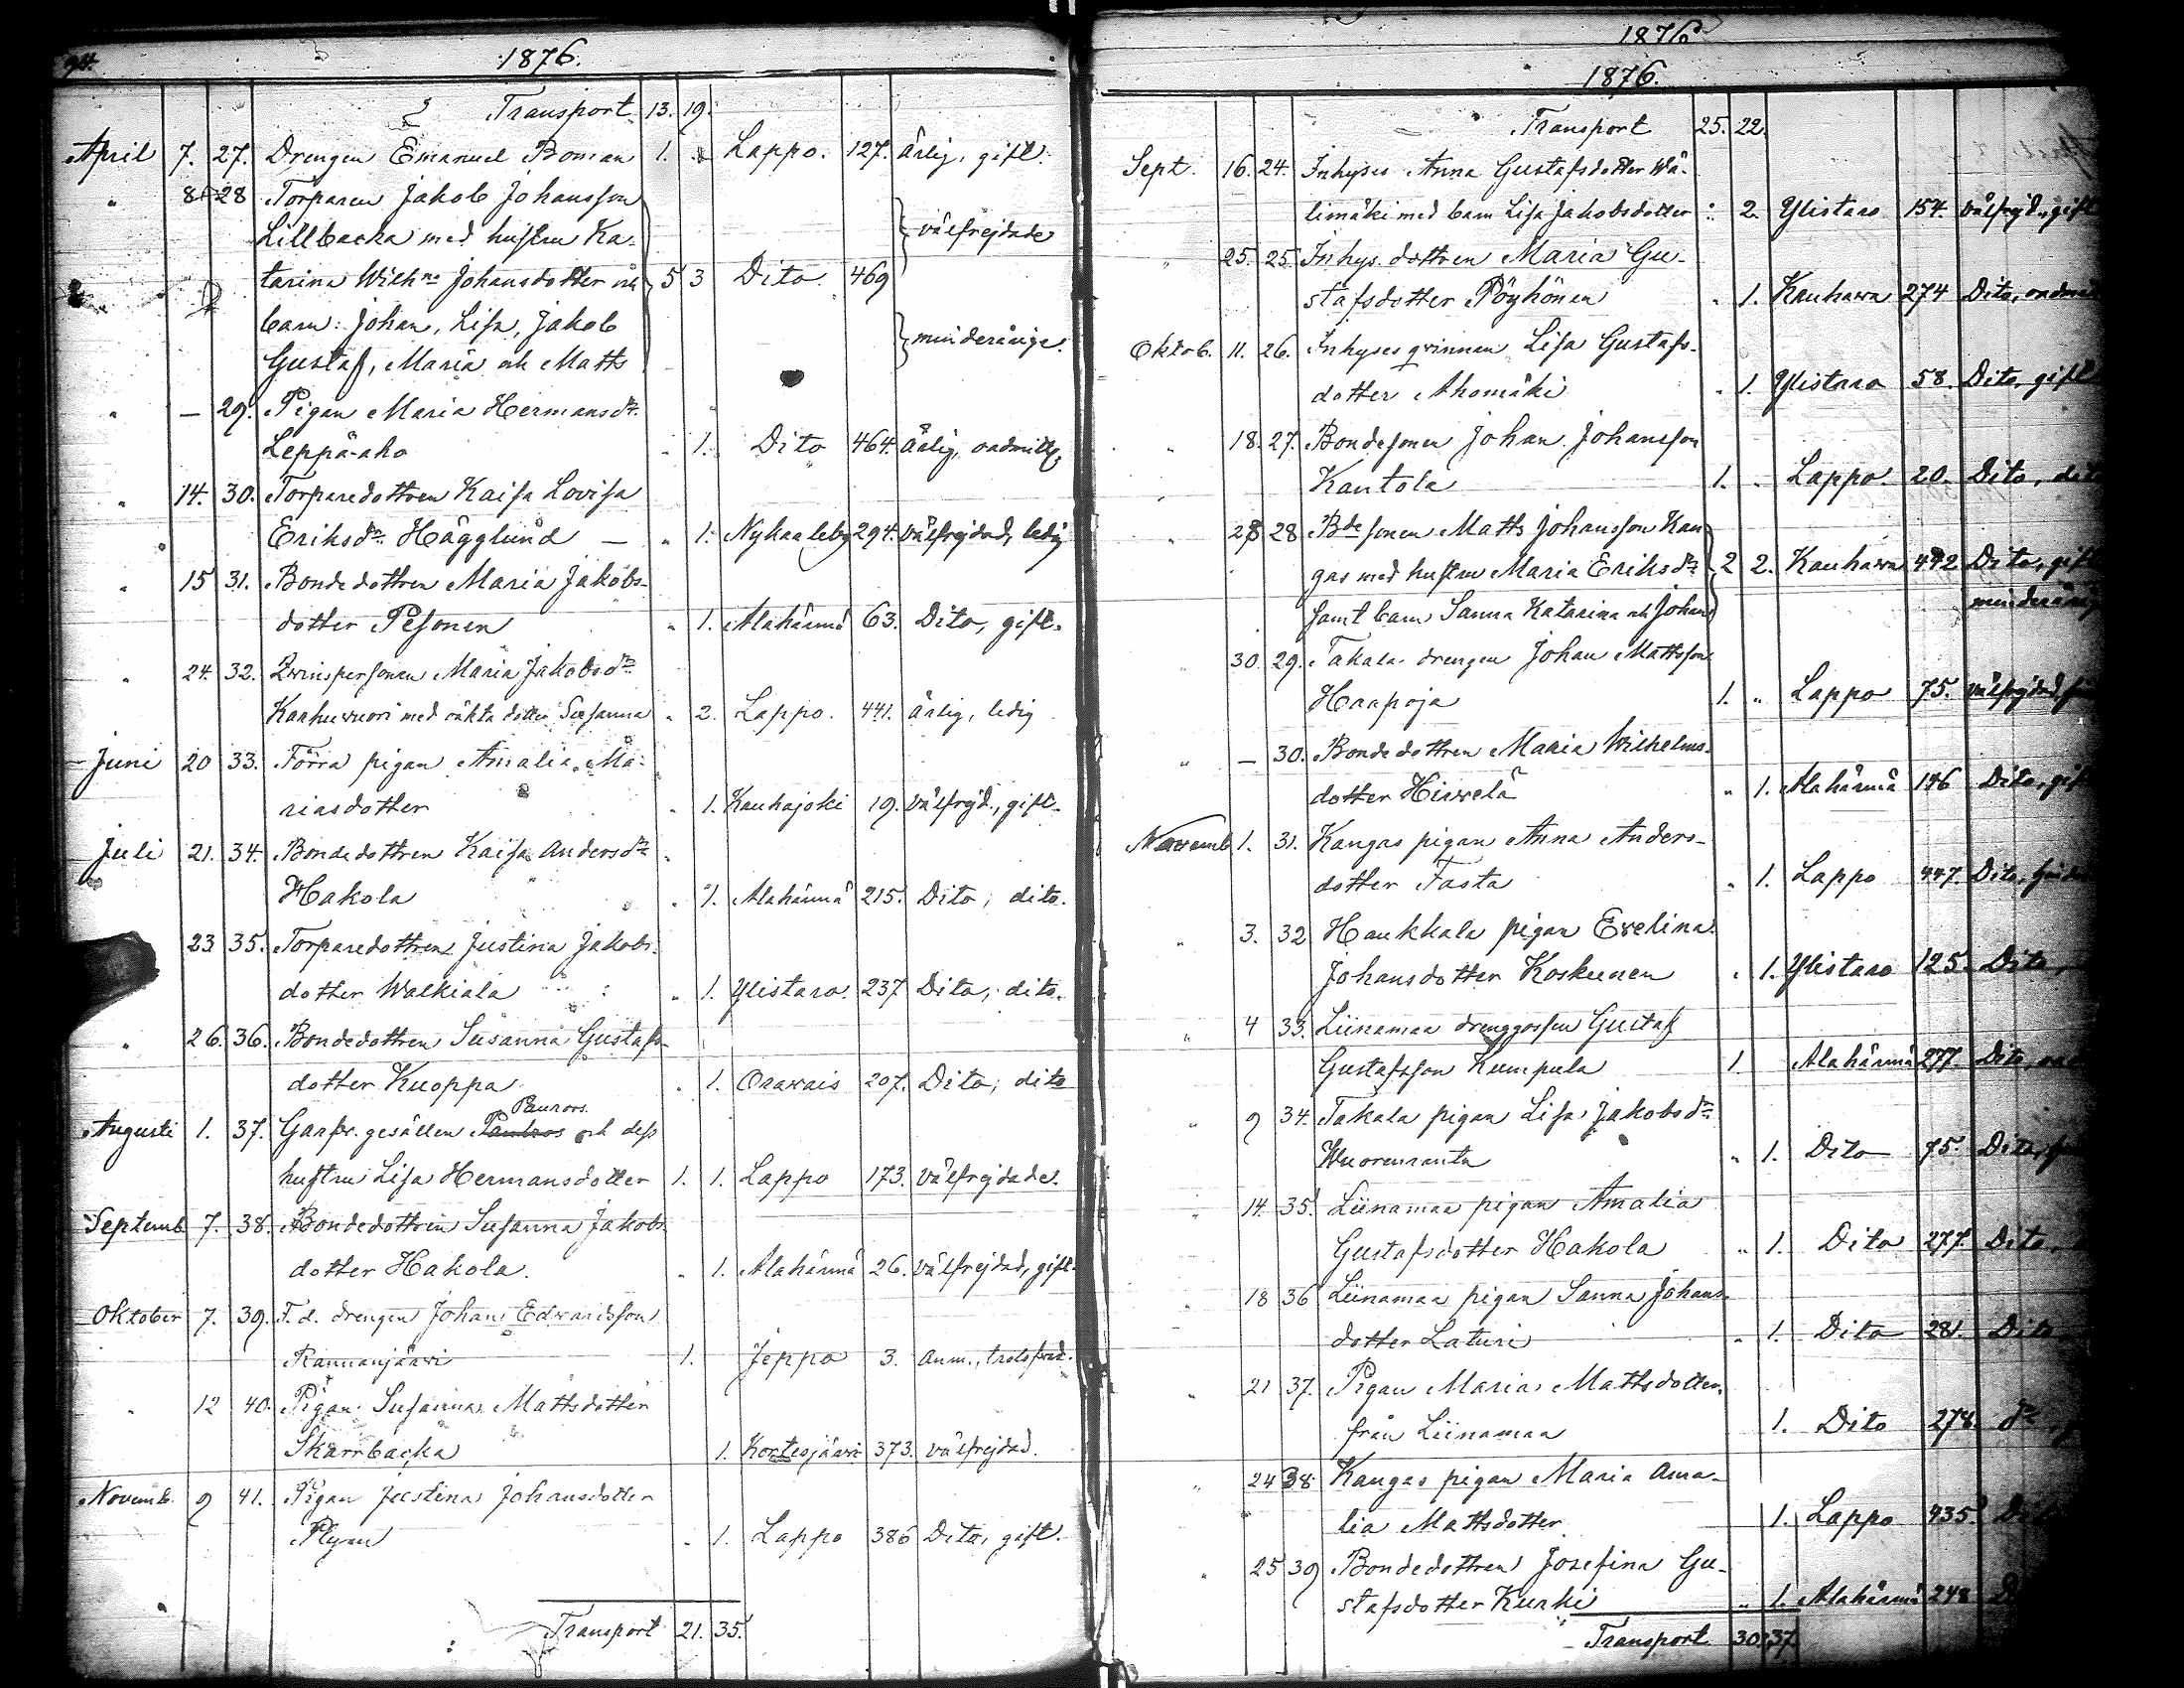 94.
1876.
Transport 13. 19.
April 7. 27. Drengen Emanuel Boman 1. " Lappo. 127. ärlig, gift.
" 8 28 Torparen Jakob Johansson
Lillbacka med hustru Ka- välfrejdade
tarina Wilh:na Johansdotter och 5 3 Dito 469
barn: Johan, Lisa, Jakob
Gustaf, Maria och Matts minderårige.
" — 29. Pigan Maria Hermansdr.
Leppä-aho " 1. Dito 464. ärlig,
" 14. 30. Torparedottren Kaisa Lovisa
Eriksdr. Hägglund — " 1. Nykarleby 294. välfrejdad, ledig
" 15 31. Bondedottren Maria Jakobs-
dotter Pesonen " 1. Alahärmä 63. Dito, gift.
" 24. 32. Qvinspersonen Maria Jakobsdr
Karhuvuori med oäkta dotter Susanna " 2. Lappo. 441. ärlig, ledig
Juni 20 33. Förra pigan Amalia Ma-
riasdotter " 1. Kauhajoki 19. välfrejd., gift.
Juli 21. 34. Bondedottren Kaisa Andersdr
Hakola " 1. Alahärmä 215. Dito, dito.
23 35. Torparedottren Justina Jakobs-
dotter Walkiala " 1. Ylistaro. 237 Dito, dito.
" 26. 36. Bondedottren Susanna Gustafs-
dotter Kuoppa " 1. Oravais 207. Dito, dito
Augusti 1. 37. Garfv. gesällen och dess
hustru Lisa Hermansdotter 1. 1. Lappo 173. välfrejdade.
Septemb 7. 38. Bondedottren Susanna Jakobs-
dotter Hakola. " 1. Alahärmä 26. välfrejdad, gift.
Oktober 7. 39. F. d. drengen Johan Edvardsson
Rannanjärvi 1. Jeppo 3. Anm.,
" 12 40. Pigan Susanna Mattsdotter
Skarrbacka 1. Kortesjärvi 373. välfrejdad.
Novemb. 9 41. Pigan Justina Johansdotter
Plym " 1. Lappo 386 Dito, gift.
Transport 21. 35.
1876
1876.
Transport 25. 22.
Sept. 16. 24. Inhyses Anna Gustafsdotter Wä-
limäki med barn Lisa Jakobsdotter " 2. Ylistaro 154. välfrejd., gift
" 25. 25. Inhys. dottren Maria Gu-
stafsdotter Pöyhönen " 1. Kauhava 274 Dito,
Oktob. 11. 26. Inhyses qvinnan Lisa Gustafs-
dotter Ahomäki " 1. Ylistaro 58. Dito, gift
" 18. 27. Bondesonen Johan Johansson
Kantola 1. " Lappo 20. Dito, dito
" 28 28 Bde sonen Matts Johansson Kan-
gas med hustru Maria Eriksdr 2 2. Kauhava 442 Dito, gift
samt barn Sanna Katarina och Johan minderårig
" 30 29. Takala drengen Johan Mattsson
Haapoja 1. " Lappo 75. välfrejdad,
" — 30. Bondedottren Maria Wilhelms-
dotter Hirvelä " 1. Alahärmä 146 Dito, gift
Novemb 1. 31. Kangas pigan Anna Anders-
dotter Tasta " 1. Lappo 447. Dito,
" 3. 32 Haukkala pigan Evelina
Johansdotter Koskunen " 1. Ylistaro 125. Dito,
" 4 33. Liinamaa drenggossen Gustaf
Gustafsson Kumpula 1. Alahärmä 277. Dito,
" 9 34. Takala pigan Lisa Jakobsdr
Wuorenranta " 1. Dito 75. Dito,
" 14. 35. Liinamaa pigan Amalia
Gustafsdotter Hakola " 1. Dito 277. Dito,
" 18 36 Liinamaa pigan Sanna Johans-
dotter Laturi " 1. Dito 281. Dito
" 21 37. Pigan Maria Mattsdotter
från Liinamaa 1. Dito 278.
" 24 38. Kangas pigan Maria Ama-
lia Mattsdotter 1. Lappo 435.
" 25 39 Bondedottren Josefina Gu-
stafsdotter Kurki " 1. Alahärmä 248
Transport 30 37